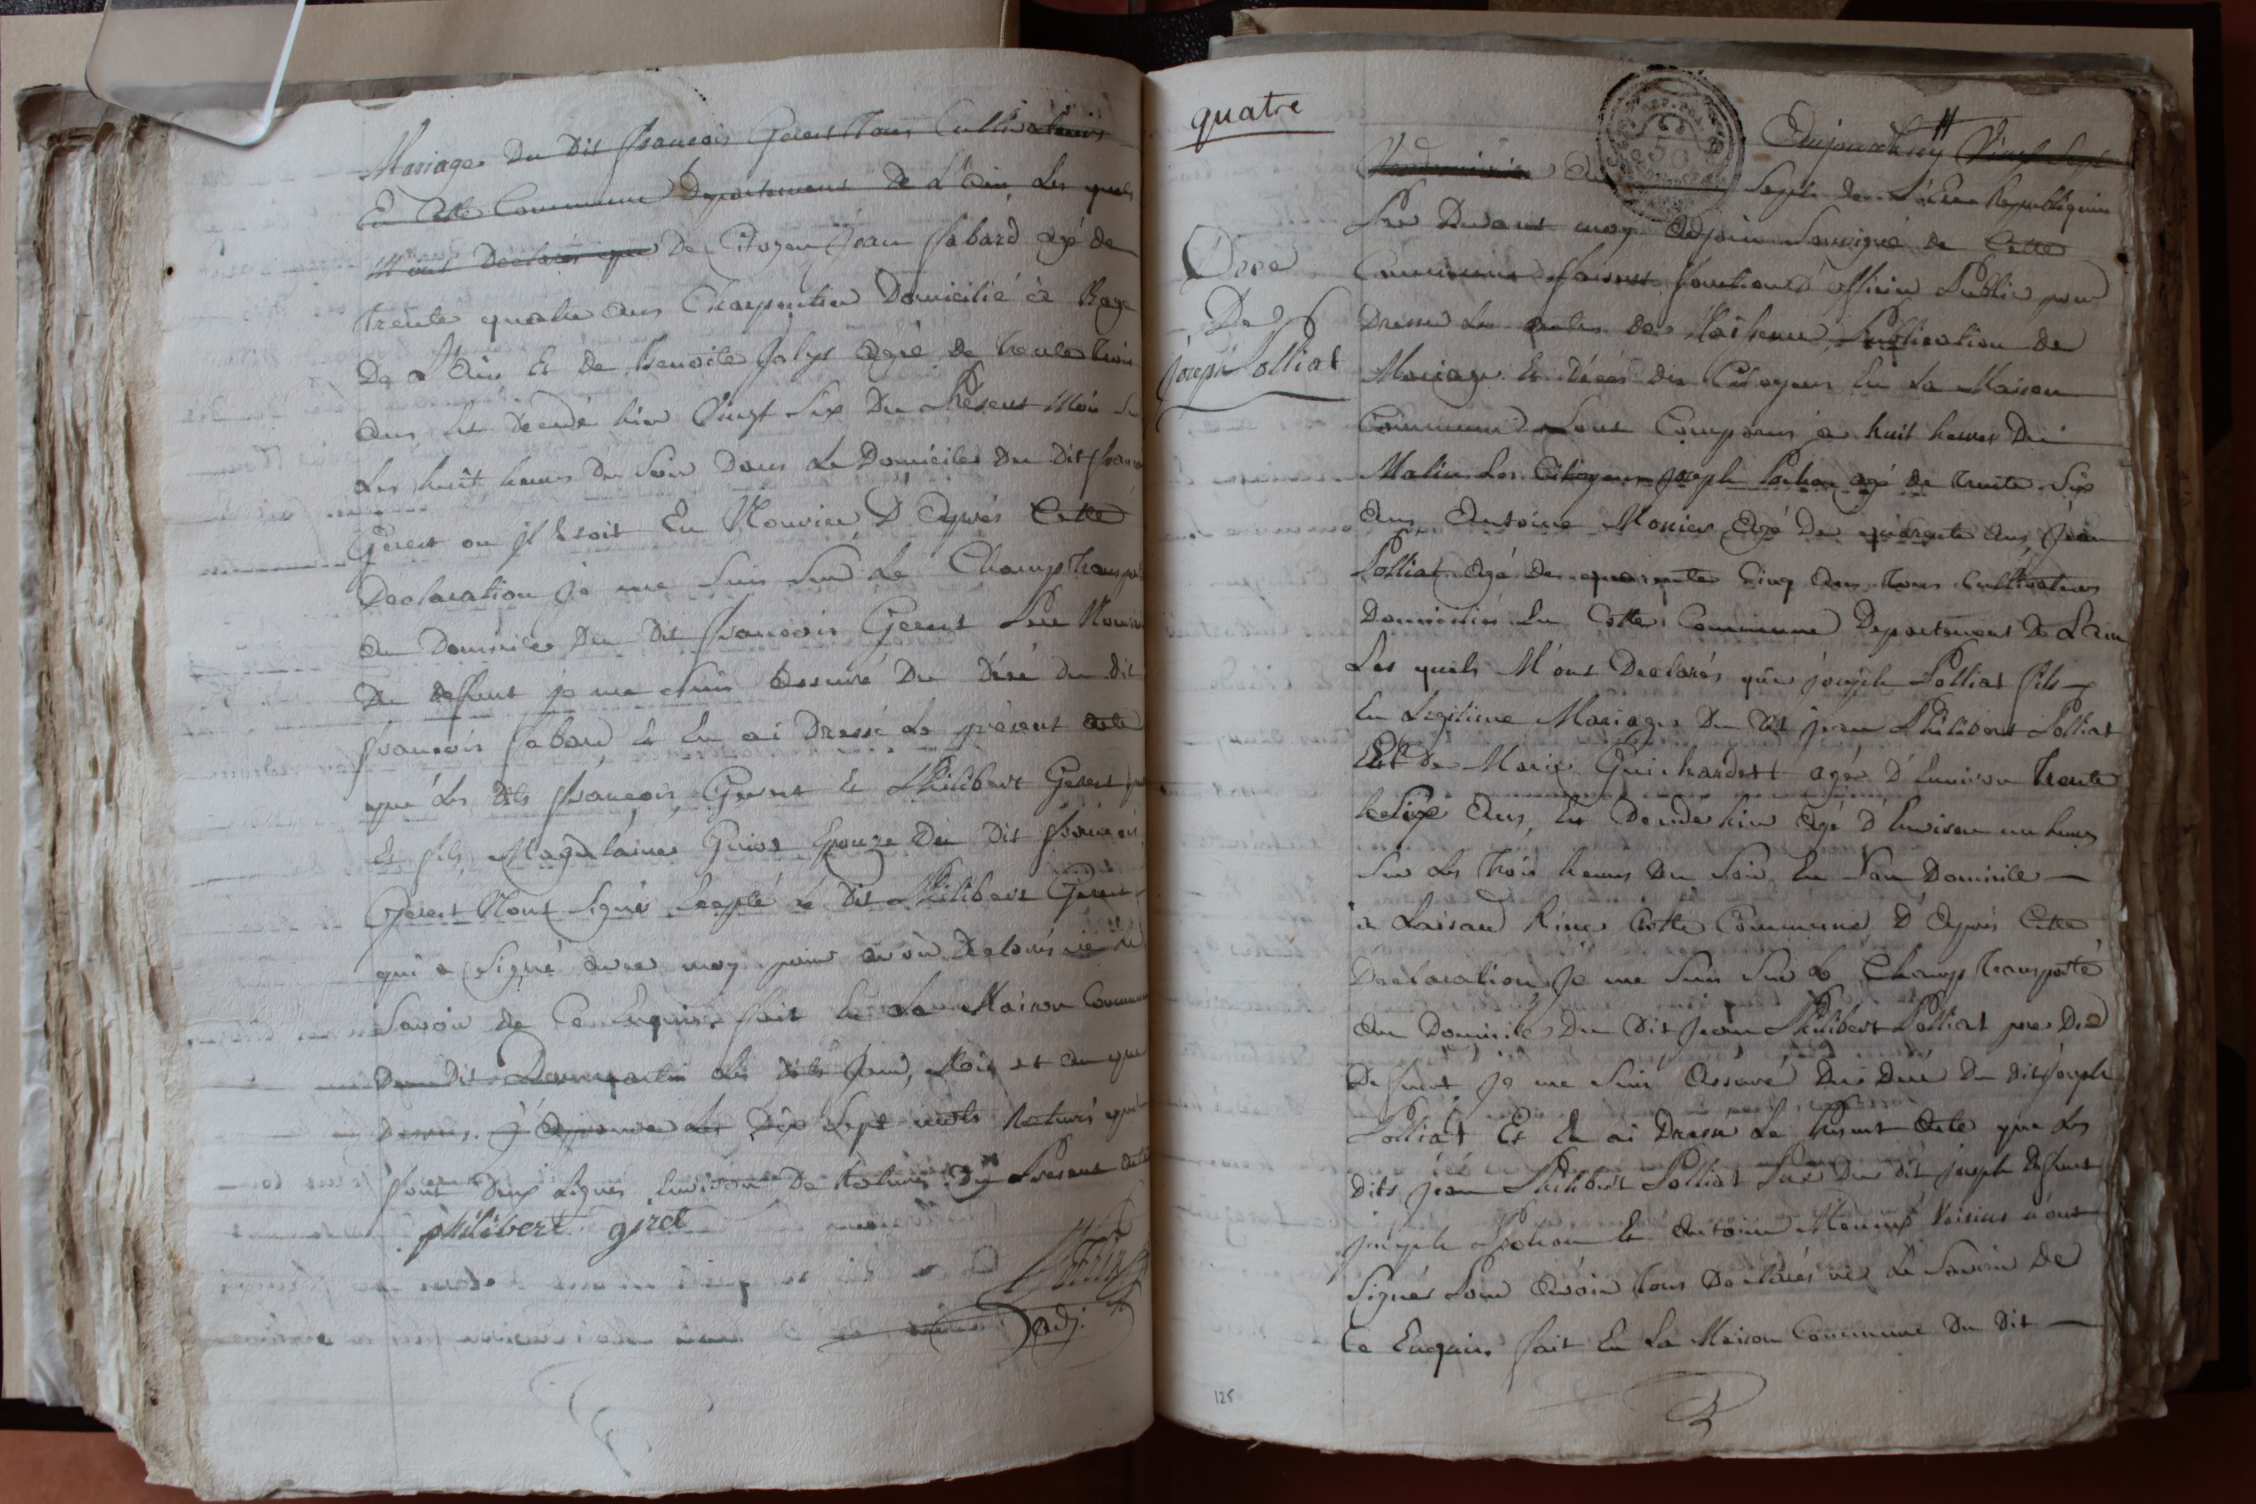 Mariage Du Dit françois Gerert Tous Cultivateurs
En Cette Commune Departement De L'ain Les quels
M'ont Declarés que De Citoyen Jean fabard agé de
trente quatre ans Charpentier Domicilié à Bage
De L'Ain Et De Benoite Jolys agé de trente trois
ans Est Decedé hier Vingt Six Du Present Mois Sur
Les huit heures Du Soir Dans Le Domicile Du Dit françois
Gerert ou jl Etoit En Nourice D'après Cette
Declaration Je me Suis Sur Le Champ Transporté
au Domicile Du Dit françois Gerert Pere Nouricier
Du deffunt je me Suis assuré Du Décé du dit
françois fabard Et En ai Dressé Le présent acte
que Les dits françois Gerert Et Philibert Gerert
Et fils Magdelaine Guiot Epouze Du Dit françois
Gerert N'ont Signé Excepté le Dit Philibert Gerert
qui a Signé avec moy pour avoir Declarés ne le
Savoir de Ce Enquis. fait En La Maison Commune
Du Dit Dommartin Les dits Jour, Mois et an que
Dessus. J'approuve Les Dix Sept mots Raturés qui
font Deux Lignes Environ De Ratures Du Present acte
philibert giret
adj.
quatre
Aujourdhuy Vingt Sept
Vendemiaire an Sept de L'Ere Republiquaine
Par Devant moy Adjoin Soussigné de Cette
Commune faisant fonctions D'officier Public pour
Dresser Les actes de Naissance, Publication de
Mariage Et Décés des Citoyens En La Maison
Commune Sont Comparus a huit heures Du
Matin Les Citoyens Joseph Pochon agé de trente Six
ans Antoine Monier Agé De quarante ans Jean
Polliat agé De quarante Cinq ans Tous Cultivateurs
Domiciliés En Cette Commune Departement De L'ain
Les quels M'ont Declarés que joseph Polliat fils
En Legitime Mariage Du Dit jean Philibert Polliat
Et De Marie Guichardet agé D'Environ trente
Six ans, Est Decedé hier Agé D'Environ une heure
Sur Les Trois heures Du Soir En Son Domicile
a Cette Commune D'Après Cette
Declaration Je me Suis Sur Le Champ Transporté
Au Domicile Du Dit Jean Philibert Polliat pere Du
Deffunt Je me Suis Assuré Du Décé Du dit joseph
Polliat Et En ai Dressé Le Present Acte que Les
Dits Jean Philibert Polliat Pere Du dit joseph Deffunt
joseph Pochon Et Antoine Monier Voisins n'ont
Signés Pour Avoir Tous Declarés ne Le Savoir De
Ce Enquis. fait En La Maison Commune Du Dit
Déce
De
joseph Polliat
125